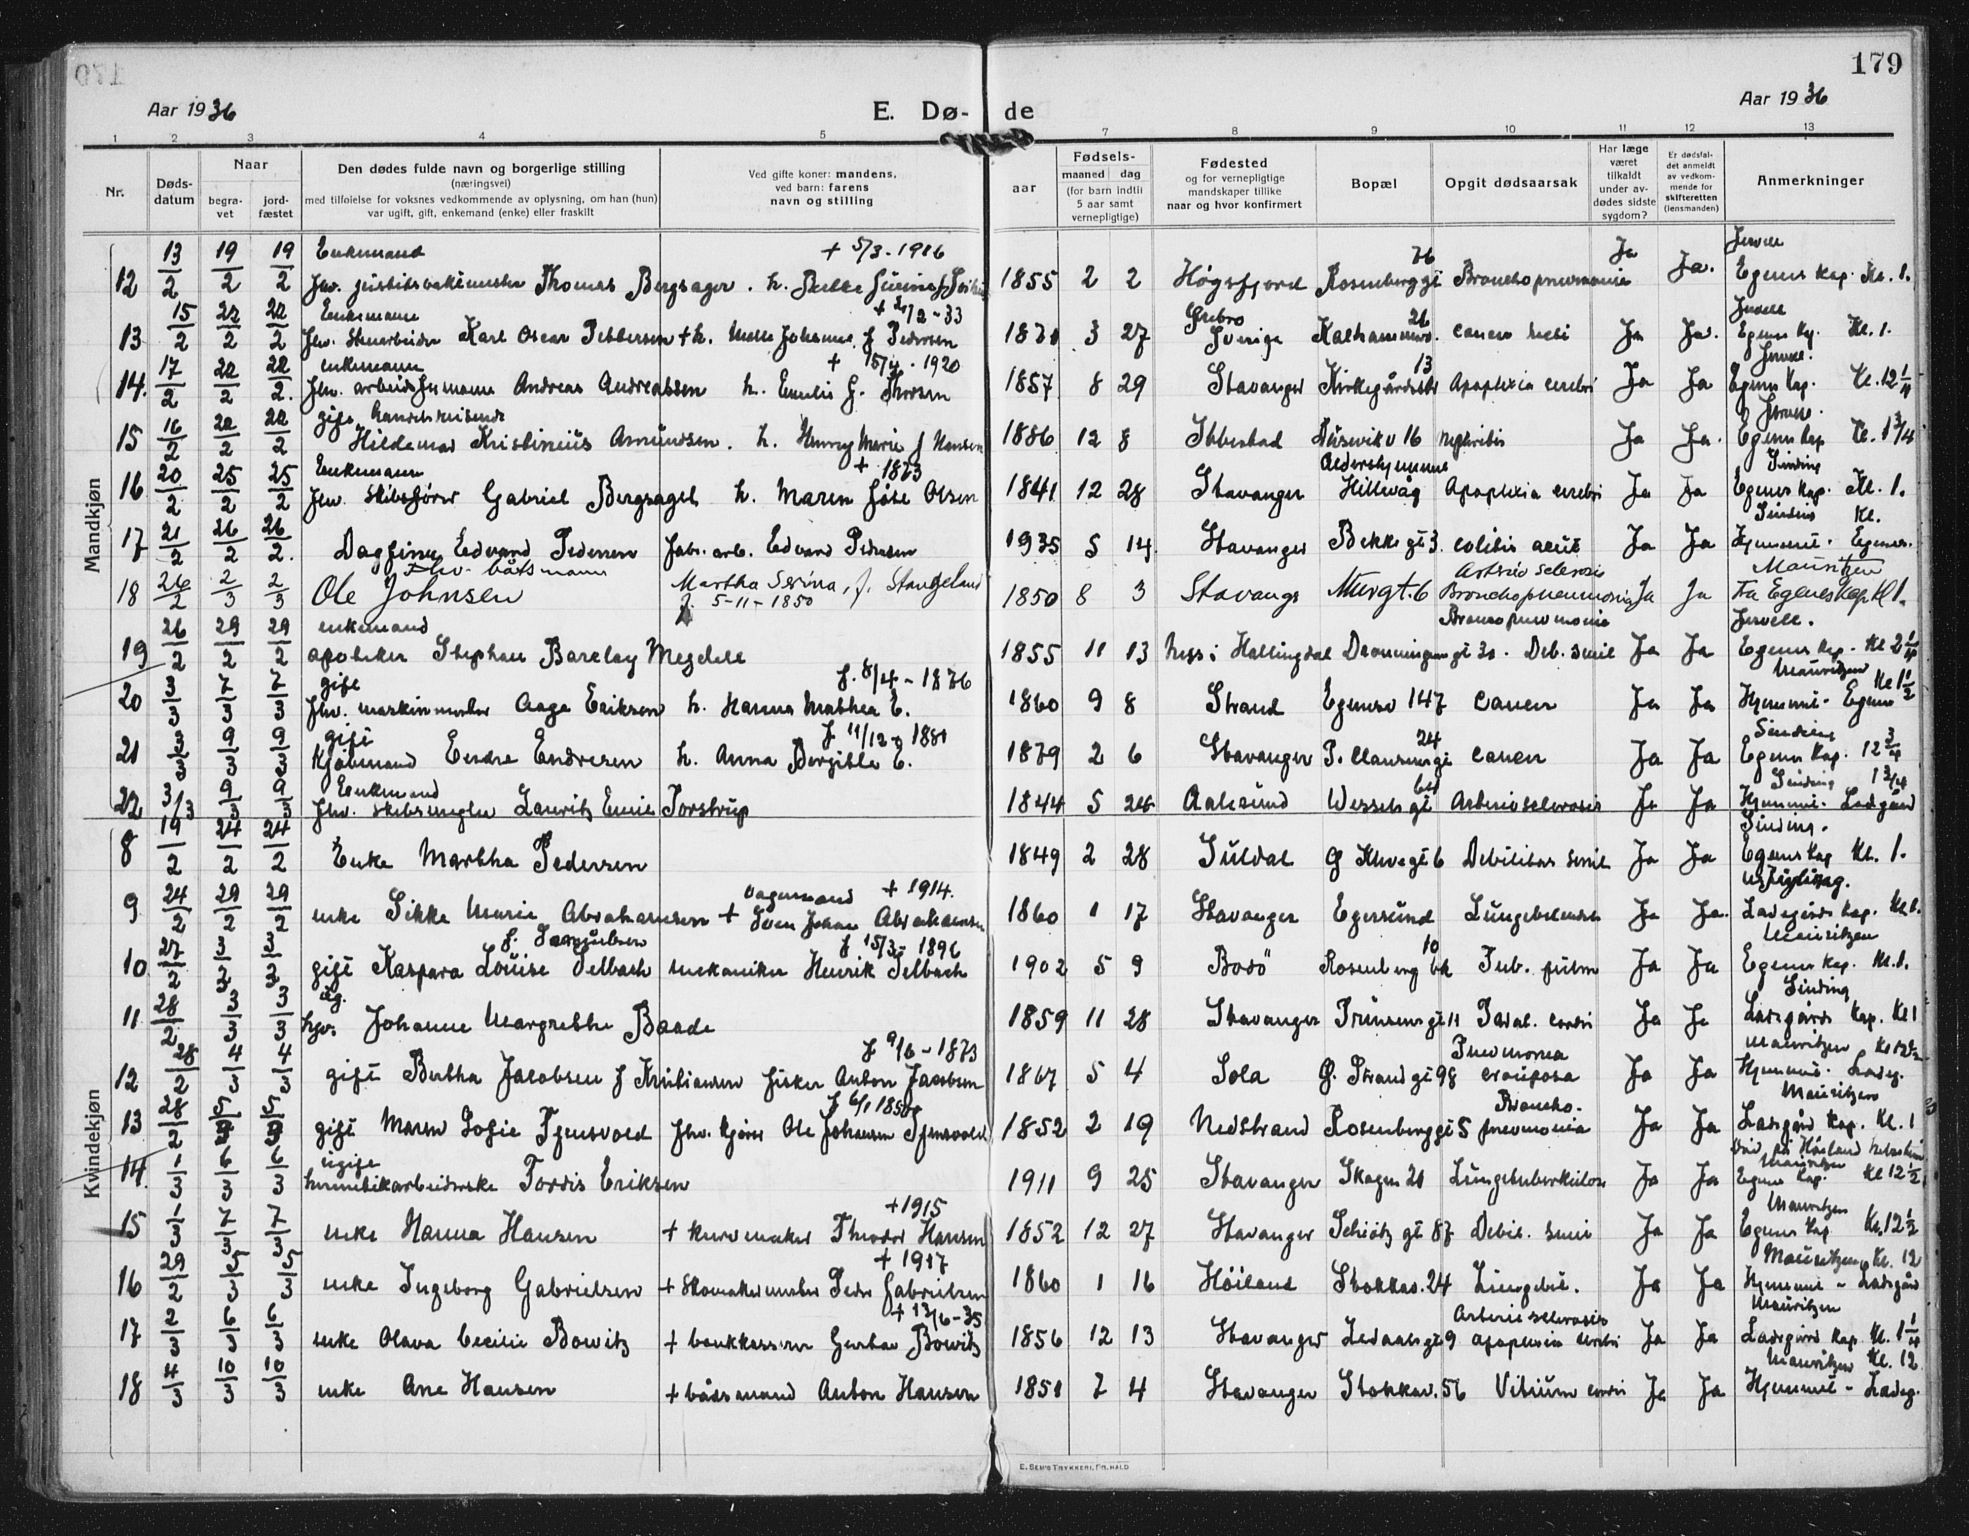 179
Aar 1936 E. Dø- de Aar 1936
1 2 3 4 5 7 8 9 10 11 12 13
Nr. Døds-datum Naar begra-vet jord-fæstet Den dødes fulde navn og borgerlige stilling (næringsvei) med tilføielse for voksnes vedkommende av oplysning, om han (hun) var ugift, gift, enkemand (enke) eller fraskilt Ved gifte koner: mandens, ved barn: farens navn og stilling aar Fødsels- maaned dag (for barn indtil 5 aar samt vernepligtige) Fødested og for vernepligtige mandskaper tillike naar og hvor konfirmert Bopæl Opgit dødsaarsak Har læge været tilkaldt under av-dødes sidste sygdom? Er dødsfal-det anmeldt av vedkom-mende for skifteretten (lensmanden) Anmerkninger
Mandkjøn
12 13/2 19/2 19/2 Enkemand fhv. Thomas Bergsager + 5/3-1916 1855 2 2 Høgsfjord Rosenberggt 76 Bronchopneumonie Ja Ja. Jervell Egenes Kap. Kl. 1.
13 15/2 22/2 22/2 Enkemann fhv. Karl Oscar Pettersen + h. Johanne f Pedersen 3 27 Ørebro Sverige 26 cancer Ja Ja. Jervell Kl. 1.
14. 17/2 22/2 22/2. enkemann fhv. arbeidsformann Andreas Andreassen h. Emilie G. Thorsen 1857 8 29 Stavanger 13 Apoplexia cerebri Ja Ja Jervell. Egenes Kap. Kl. 12 1/4
15 16/2 22/2 22/2 gift handelsreisende Hildemar Kristinius Amundsen. h. Marie f Hansen 1886 12 8 Ibbestad 16 nephritis Ja Ja. Egenes Kap Kl. 1 3/4
16 20/2 25/2 25/2 Enkemann fhv. skibsfører Gabriel Bergsagel h. Maren Olsen + 1873 1841 12 28 Stavanger Aldershjemmet Hillevåg Apoplexia cerebri Ja Ja Sinding Egenes Kap. Kl. 1.
17 21/2 26/2 26/2. Dagfinn Edvard Pedersen fabr. arb. Edvard Pedersen 1935 5 14. Stavanger Bekkegt 3. colitis acut Ja Ja Sinding Kl. Hjemmet - Egenes.
18 26/2 2/3 2/3 Fhv. båtsmann Ole Johnsen Martha Serina, f. Stangeland f. 5-11-1850 1850 8 3 Stavanger Murgt. 6 Arteriosclerosis Bronchopneumonia Ja Ja Mauritzen Fra Egenes Kap Kl 1.
19 26/2 29/2 29/2 enkemand apoteker Stephan Barclay Megdell 1855 11 13 Ness i Hallingdal Dronningensgt 30. Bronchopneumonie Deb. senil Ja Ja Jervell. Egenes Kap. Kl 2 1/4
20 3/3 7/3 7/3 gift fhv. maskinmester Aage Eriksen h. Hanna Mathea E. f. 8/4-1876 1860 9 8 Strand Egenesv 147 Cancer Ja Ja Mauritzen Kl 1 1/2 Hjemmet - Egenes
21 3/3 9/3 9/3 gift Kjøbmand Endre Endresen h. Anna Bergitha E. f 11/12-1881 1879 2 6 Stavanger P. Claussensgt 24 Cancer Ja Ja Sinding Egenes Kap. 12 3/4
22 3/3 9/3 9/3 Enkemand fhv. skibsmegler Lauritz Emil Torstrup 1844 5 Aalesund Wesselsgt 64 Arteriosclerosis Ja Ja Sinding 1 3/4 Hjemmet. Ladegård
Kvindekjøn
8 19/2 24/2 24/2 Enke Martha Pedersen 1849 2 28 Suldal G Klevegt 6 Debilitas senil Ja Ja Sinding. Egenes Kap Kl. 1.
9 24/2 29/2 29/2 enke Sikke Marie Abrahamsen + dagmand Sven Johan Abrahamsen + 1914. 1860 1 17 Stavanger Egersund Ja Ja. Ladegårds Kap. Kl. 1.
10 27/2 3/3 3/3 gift Kaspara Louise Selbach f. Samuelsen mekaniker Henrik Selbach f 15/3-1896 1902 5 9 Bodö Rosenberg bk 10 Tub. pulm Ja Ja Mauritzen Egenes Kap. Kl. 1.
11 28/2 3/3 3/3 ug. hgv. Johanne Margrethe Baade 1859 11 28 Stavanger 11 cordis Ja Ja Sinding Ladegårds Kap. Kl 1
12 28/2 4/3 4/3 gift Bertha Jacobsen f Kristiansen fisker Anton Jacobsen f 9/6-1873 1867 5 4 Sola G. Strandgt 98 Pneumonia crouposa Ja Ja Mauritzen Hjemmet. Ladeg.
13 28/2 5/3 5/3 gift Maren Sofie Tjensvold fhv. kjører Ole Johansen Tjensvold 1852 2 19 Nedstrand Rosenberggt 5 Broncho-pneumonia Ja Ja Mauritzen Ladegård Kap. Kl. 1
14. 1/3 6/3 6/3 ugift hermetikarbeiderske Tordis Eriksen 1911 9 25 Stavanger Skagen 21 Lungetuberkulose Ja Ja Mauritzen Egenes Kap. Kl 12 1/2
15 1/3 7/3 7/3 enke Hanna Hansen + kurvmaker Theodor Hansen +1915 1852 12 27 Stavanger Schiøtz gt 87 Debil. senil Ja Ja Mauritzen Egenes Kap Kl. 12 1/2
16 29/2 5/3 5/3 enke Ingeborg Gabrielsen + Skomakermester Peder Gabrielsen + 1917 1860 1 16 Höiland Stokkav. 24 Ja Ja Mauritzen Kl. 12 Hjemmet - Ladegård
17 2/3 6/3 6/3 enke Olava Cecilie Bowitz + bankkasserer Gustav Bowitz + 13/6-35 1856 12 13 Stavanger Ledaalsgt 9 Arteriosclerosis apoplexia cerebri Ja Ja Mauritzen Ladegård Kap. Kl. 1 1/4
18 4/3 10/3 10/3 enke Ane Hansen + bådsmand Anton Hansen 1851 7 4 Stavanger Stokkav. 56 Vitium cordis Ja Ja Mauritzen Kl. 12 Hjemmet - Ladeg.
E. SEM'S TRYKKERI, FR.HALD